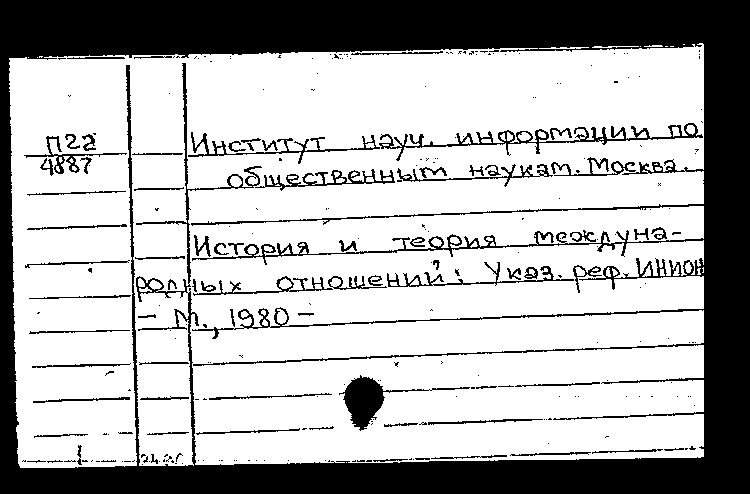 П22
4887
Институт науч. информации по
общественным наукам. Москва.
История и теория междуна-
родных отношений: Указ. реф. ИНИОН
– М., 1980 –